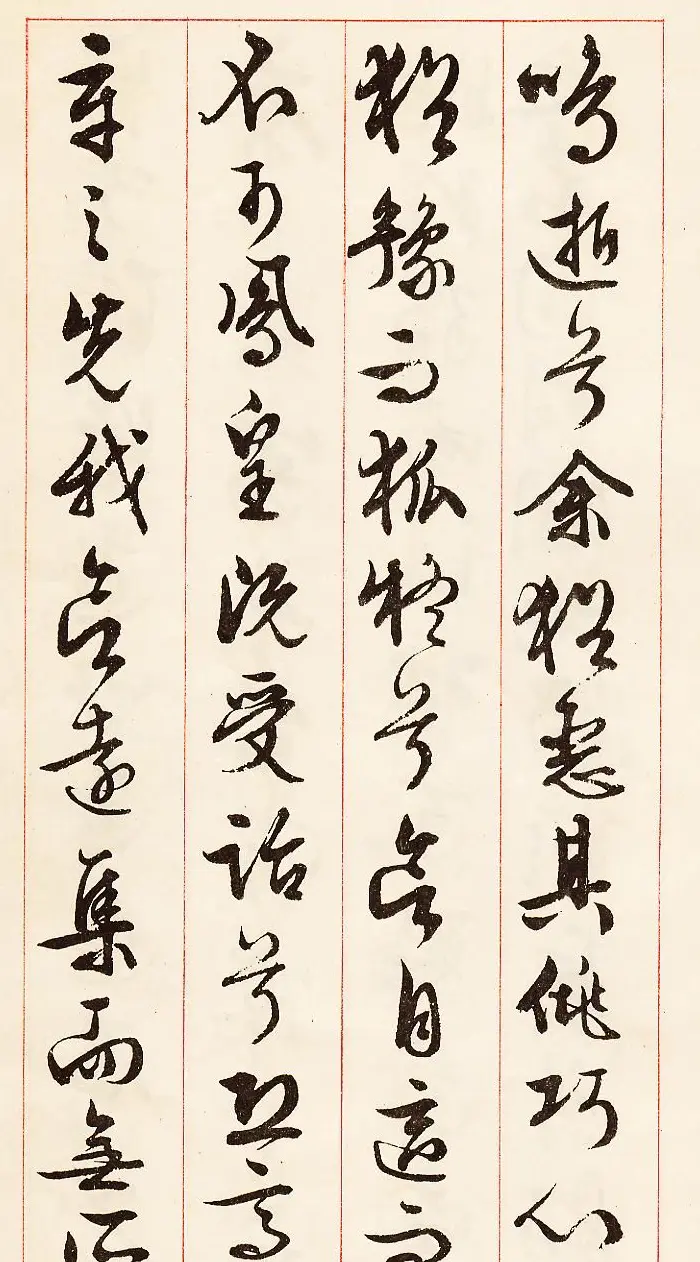 鳴逝兮余猶惡其佻巧心
猶豫而狐疑兮欲自適而
不可鳳皇既受詒兮恐高
辛之先我欲遠集而無所